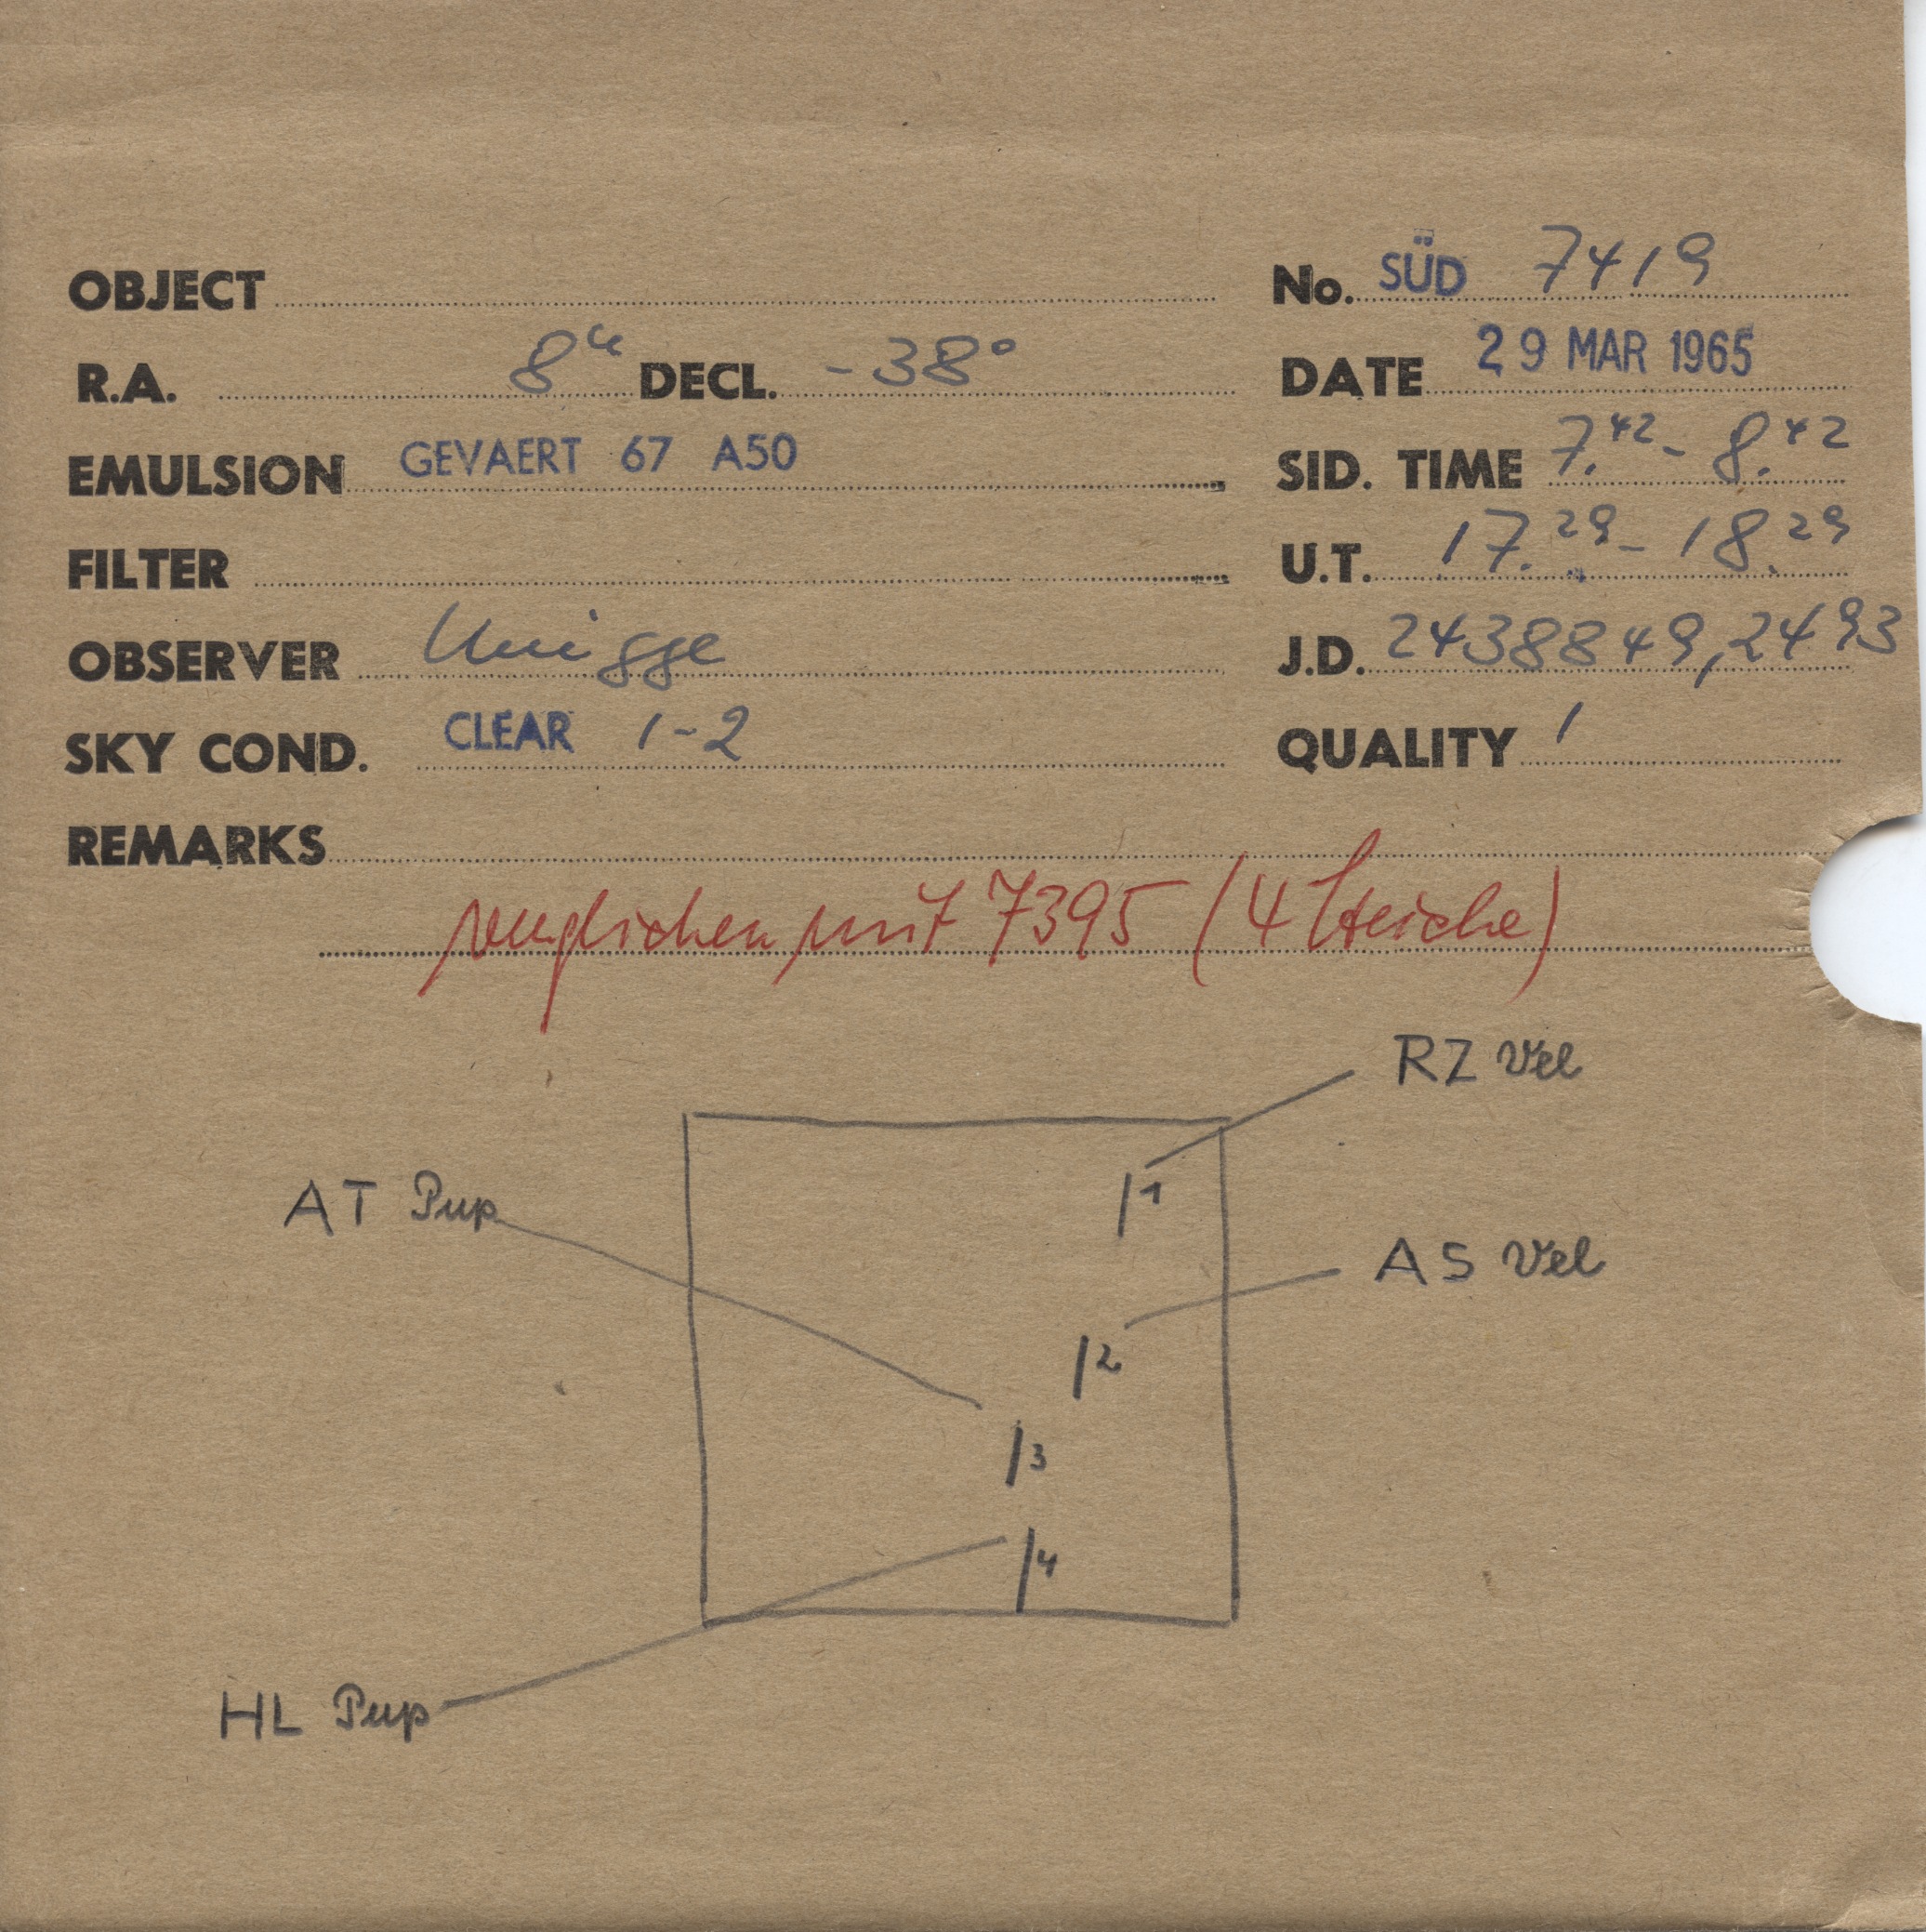 OBJECT No. SÜD 7419
R.A. 8h DECL. -38°
DATE 29 MAR 1965
EMULSION GEVAERT 67 A50
SID. TIME 7.42 - 8.42
FILTER
U.T. 17.29 - 18.29
OBSERVER Knigge
J.D. 2438849,2493
SKY COND. CLEAR 1-2
QUALITY 1
REMARKS
verglichen mit 7395 (4 Striche)
RZ Vel
1
AT Pup
AS Vel
2
3
4
HL Pup